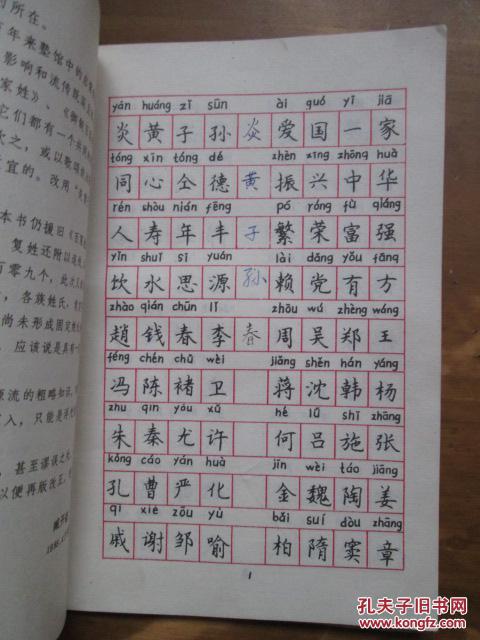 的所在。
年来塾馆中的
影响和流传既深
家姓》、《御制
它们都有一个共
次之，或以歌颂
适宜的。改用
本书仍援旧《百
复姓还附以
百零九个，此次
，各族姓氏，
尚未形成固定
应该说是具有一
源流的粗略知识，
只能是
，甚至谬误之
以便再版改正。
yán huáng zǐ sūn ài guó yī jiā
炎 黄 子 孙 炎 爱 国 一 家
tóng xīn tóng dé zhèn xīng zhōng huà
同 心 仝 德 黄 振 兴 中 华
rén shòu nián fēng pó róng fù qiáng
人 寿 年 丰 子 繁 荣 富 强
yǐn shuǐ sī yuán lài dǎng yǒu fāng
饮 水 思 源 孙 赖 党 有 方
zhào qián chūn lǐ zhōu wú zhèng wáng
趙 钱 春 李 春 周 吴 郑 王
féng chén chǔ wèi jiǎng shěn hán yáng
冯 陈 褚 卫 蒋 沈 韩 杨
zhu qin yóu xǔ hé lǚ shī zhāng
朱 秦 尤 许 何 吕 施 张
kǒng cáo yán huà jīn wèi táo jiāng
孔 曹 严 化 金 魏 陶 姜
qī xiè zōu yù bǎi suí dòu zhāng
戚 谢 邹 喻 柏 隋 窦 章
1
孔夫子旧书网
www.kongfz.com